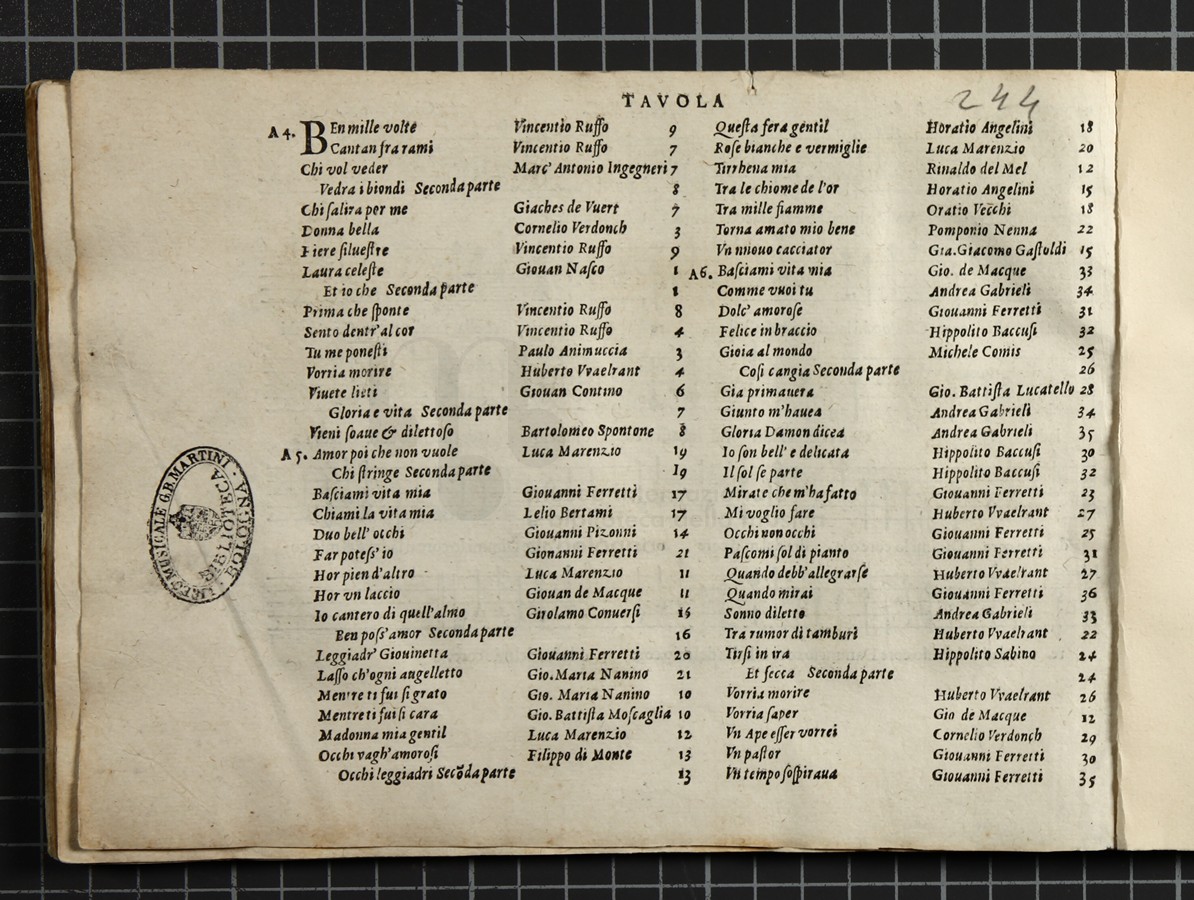 TAVOLA
244
A 4. BEn mille volte Vincentio Ruffo 9
Cantan fra rami Vincentio Ruffo 7
Chi vol veder Marc' Antonio Ingegneri 7
Vedra i biondi Seconda parte 8
Chi ſalira per me Giaches de Vuert 7
Donna bella Cornelio Verdonch 3
Fiere ſilueſtre Vincentio Ruffo 9
Laura celeſte Giouan Naſco 1
Et io che Seconda parte 1
Prima che ſponte Vincentio Ruffo 8
Sento dentr' al cor Vincentio Ruffo 4
Tu me poneſti Paulo Animuccia 3
Vorria morire Huberto Vvaelrant 4
Viuete lieti Giouan Contino 6
Gloria e vita Seconda parte 7
Vieni ſoaue & dilettoſo Bartolomeo Spontone 8
A 5. Amor poi che non vuole Luca Marenzio 19
Chi ſtringe Seconda parte 19
Baſciami vita mia Giouanni Ferretti 17
Chiami la vita mia Lelio Bertami 17
Duo bell' occhi Giouanni Pizonni 14
Far poteſs' io Gionanni Ferretti 21
Hor pien d'altro Luca Marenzio 11
Hor vn laccio Giouan de Macque 11
Io cantero di quell'almo Girolamo Conuerſi 15
Ben poſs' amor Seconda parte 16
Leggiadr' Giouinetta Giouanni Ferretti 20
Laſſo ch'ogni angelletto Gio. Maria Nanino 21
Mentre ti fui ſi grato Gio. Maria Nanino 10
Mentre ti fui ſi cara Gio. Battiſta Moſcaglia 10
Madonna mia gentil Luca Marenzio 12
Occhi vagh' amoroſi Filippo di Monte 13
Occhi leggiadri Secōda parte 13
Queſta fera gentil Horatio Angelini 18
Roſe bianche e vermiglie Luca Marenzio 20
Tirrhena mia Rinaldo del Mel 12
Tra le chiome de l'or Horatio Angelini 15
Tra mille fiamme Oratio Vecchi 18
Torna amato mio bene Pomponio Nenna 22
Vn nuouo cacciator Gia. Giacomo Gaſtoldi 15
A6. Baſciami vita mia Gio. de Macque 33
Comme vuoi tu Andrea Gabrieli 34
Dolc' amoroſe Giouanni Ferretti 31
Felice in braccio Hippolito Baccuſi 32
Gioia al mondo Michele Comis 25
Coſi cangia Seconda parte 26
Gia primauera Gio. Battiſta Lucatello 28
Giunto m'hauea Andrea Gabrieli 34
Gloria Damon dicea Andrea Gabrieli 35
Io ſon bell' e delicata Hippolito Baccuſi 30
Il ſol ſe parte Hippolito Baccuſi 32
Mirate che m'ha fatto Giouanni Ferretti 23
Mi voglio fare Huberto Vvaelrant 27
Occhi non occhi Giouanni Ferretti 25
Paſcomi ſol di pianto Giouanni Ferretti 31
Quando debb' allegrarſe Huberto Vvaelrant 27
Quando mirai Giouanni Ferretti 36
Sonno diletto Andrea Gabrieli 33
Tra rumor di tamburi Huberto Vvaelrant 22
Tirſi in ira Hippolito Sabino 24
Et ſecca Seconda parte 24
Vorria morire Huberto Vvaelrant 26
Vorria ſaper Gio de Macque 12
Vn Ape eſſer vorrei Cornelio Verdonch 29
Vn paſtor Giouanni Ferretti 30
Vn tempo ſoſpiraua Giouanni Ferretti 35
LICEO MUSICALE G.B. MARTINI · BOLOGNA ·
BIBLIOTECA